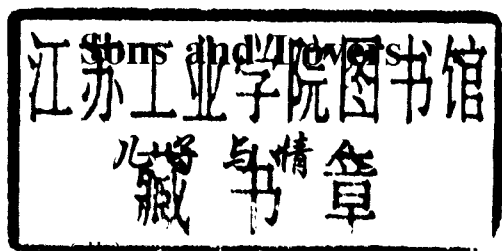 Sons and Lovers
江苏工业学院图书馆
儿子与情
藏书章